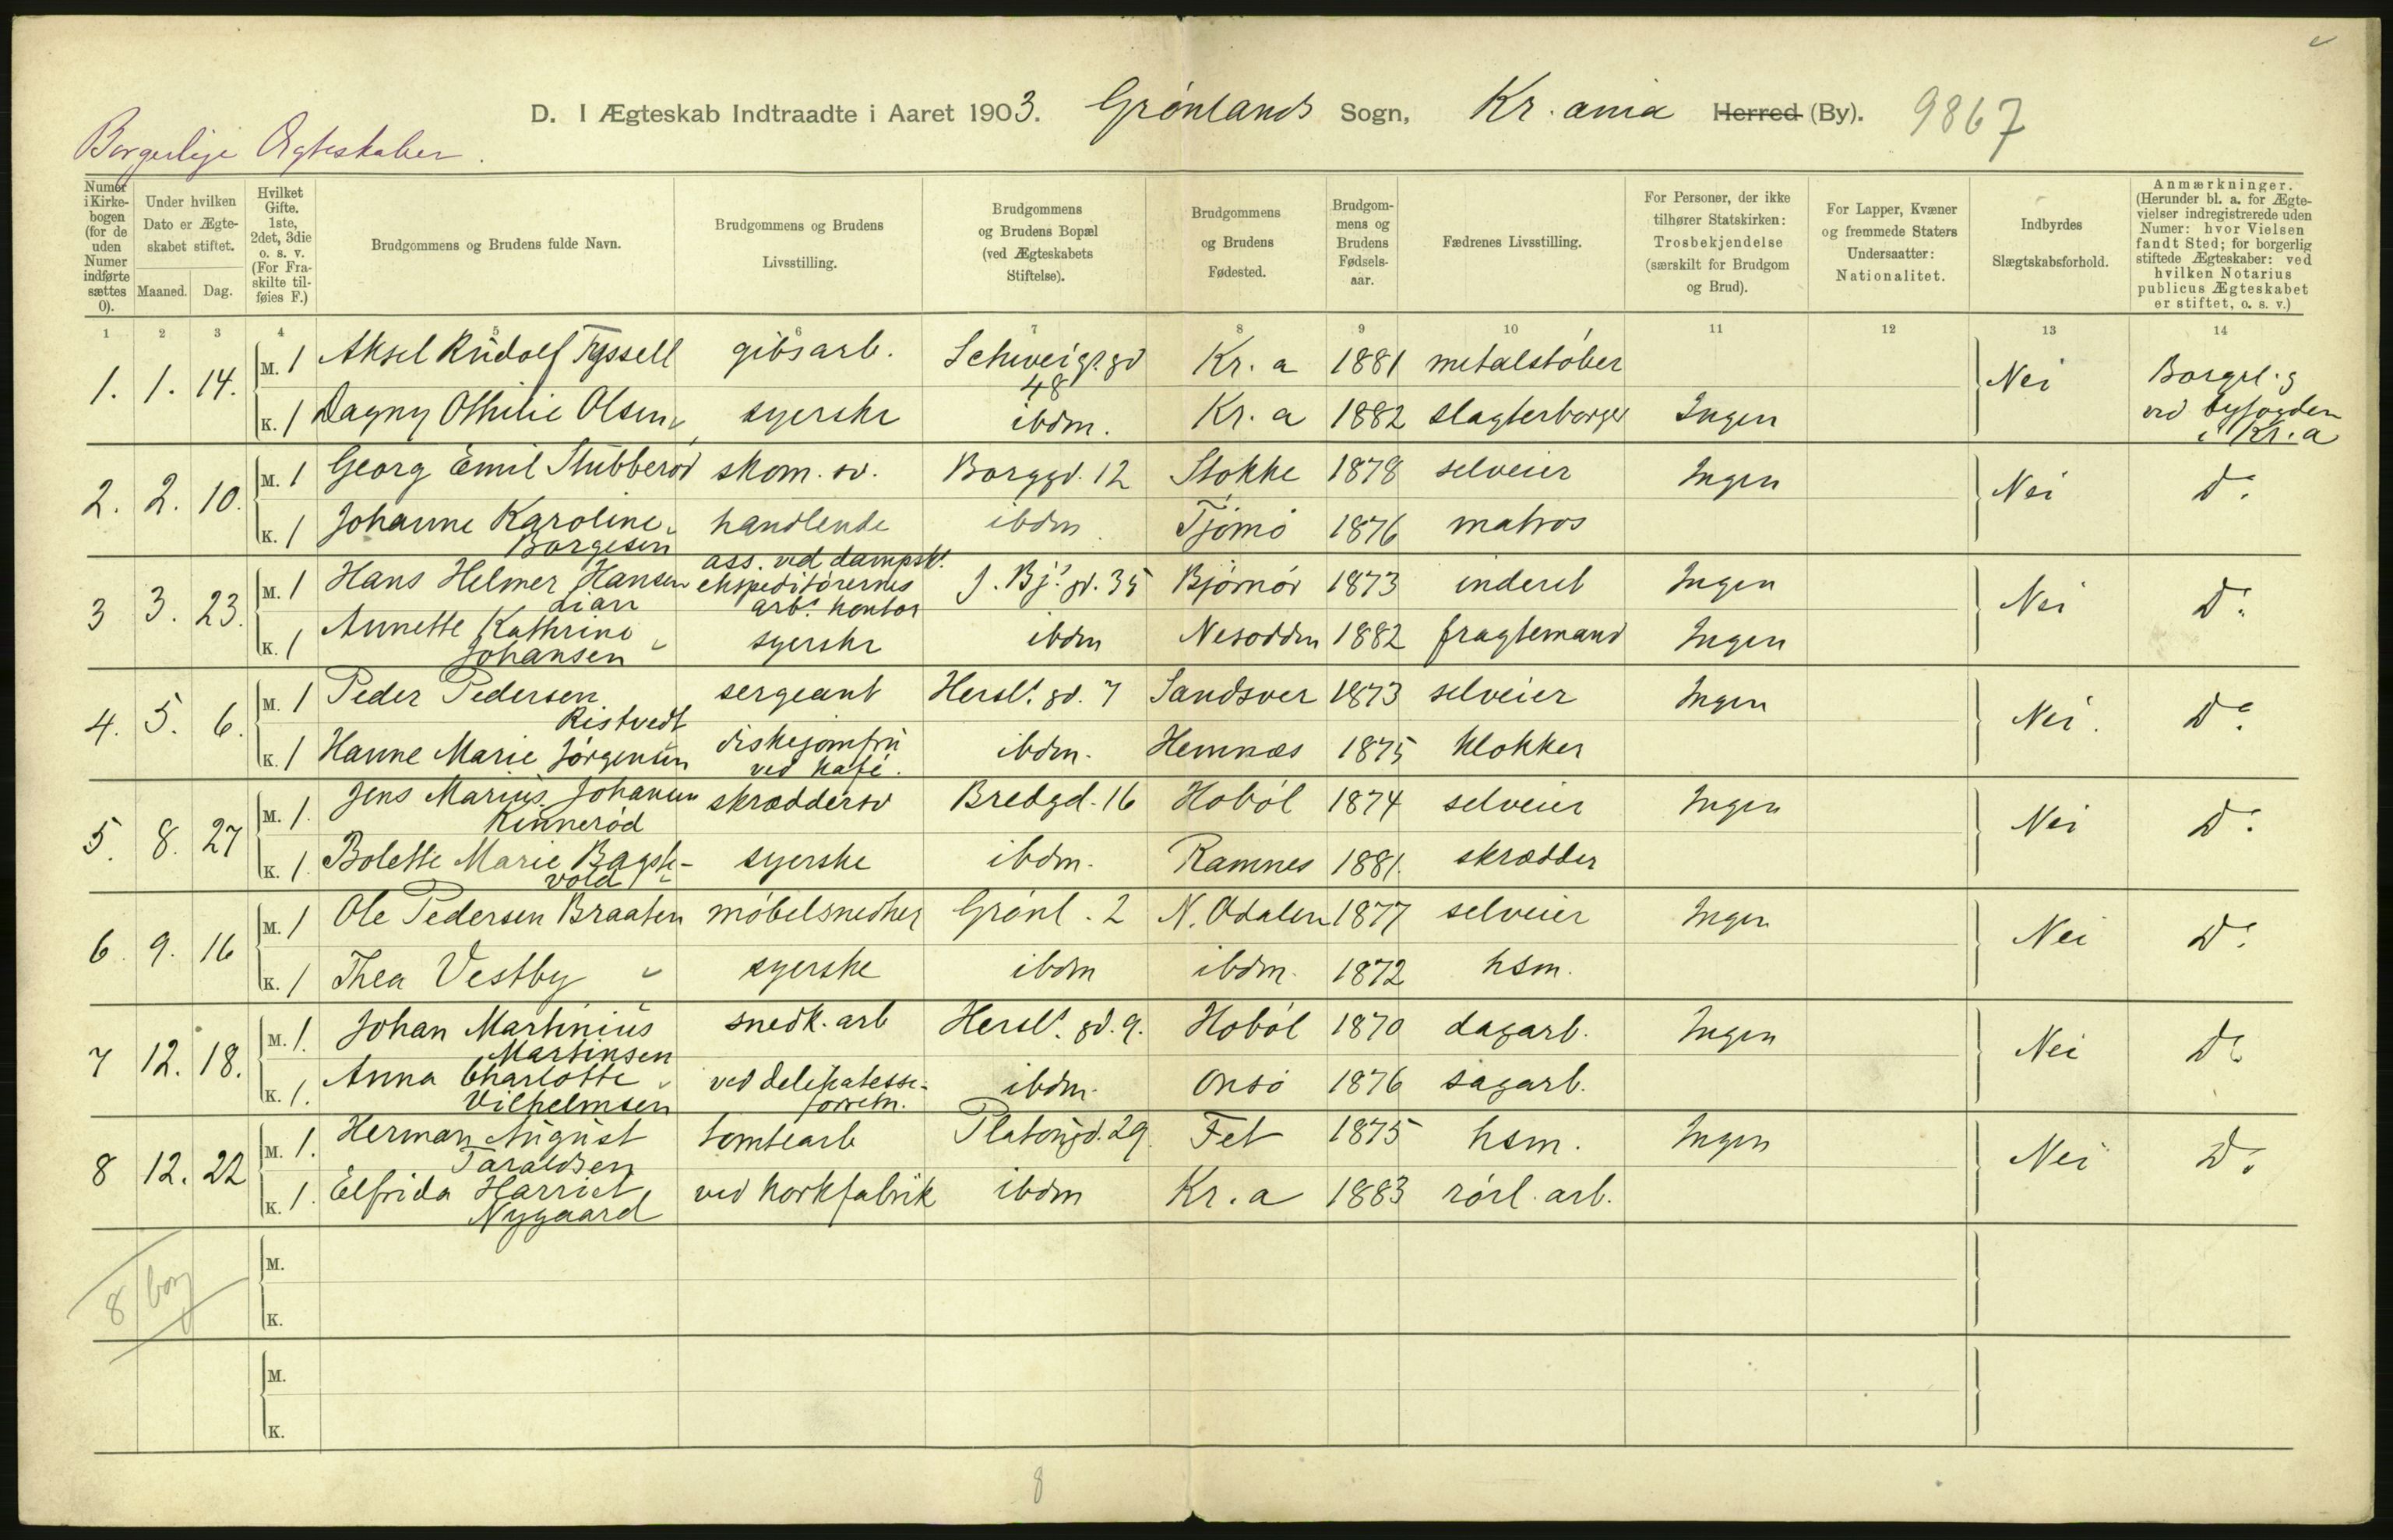 D. I Ægteskab Indtraadte i Aaret 1903. Grønlands Sogn, Kr.ania Herred (By). 9867
Borgerlige Ægteskaber.
Numer i Kirkebogen (for de uden Numer indførte sættes 0).
Under hvilken Dato er Ægteskabet stiftet.
Maaned. Dag.
Hvilket Gifte. 1ste, 2det, 3die o. s. v. (For Fraskilte tilføies F.)
Brudgommens og Brudens fulde Navn.
Brudgommens og Brudens Livsstilling.
Brudgommens og Brudens Bopæl (ved Ægteskabets Stiftelse).
Brudgommens og Brudens Fødested.
Brudgommens og Brudens Fødselsaar.
Fædrenes Livsstilling.
For Personer, der ikke tilhører Statskirken: Trosbekjendelse (særskilt for Brudgom og Brud).
For Lapper, Kvæner og fremmede Staters Undersaatter: Nationalitet.
Indbyrdes Slægtskabsforhold.
Anmærkninger. (Herunder bl. a. for Ægtevielser indregistrerede uden Numer: hvor Vielsen fandt Sted; for borgerlig stiftede Ægteskaber: ved hvilken Notarius publicus Ægteskabet er stiftet, o. s. v.)
1 2 3 4 5 6 7 8 9 10 11 12 13 14
1. 1. 14. M. 1 Aksel Rudolf Tyssell gibsarb. Schweigs gd 48 Kr.a 1881 metalstøber Nei Borgel.g ved byfogden i Kr.a
K. 1 Dagny Othilie Olsen syerske ibdm. Kr.a 1882 slagterborger Ingen
2. 2. 10. M. 1 Georg Emil Stubberød skom. sv. Borggd. 12 Stokke 1878 selveier Ingen Nei Do.
K. 1 Johanne Karoline Borgesen handlende ibdm Tjømø 1876 matros
3 3. 23. M. 1 Hans Helmer Hansen Lian ass. ved dampsk. ekspeditørernes arbs kontor J. Bjs gd. 35 Bjørnør 1873 inderst Ingen Nei Do.
K. 1 Annette Kathrine Johansen syerske ibdm Nesodden 1882 fragtemand Ingen
4. 5. 6. M. 1 Peder Pedersen Ristvedt sergeant Hersls gd. 7 Sandsver 1873 selveier Ingen Nei. Do.
K. 1 Hanne Marie Jørgensen diskejomfru ved kafé. ibdm. Hemnæs 1875 klokker
5. 8. 27 M. 1. Jens Marius Johansen Rinnerød skræddersv Bredgd. 16 Hobøl 1874 selveier Ingen Nei Do.
K. 1. Bolette Marie Bagstevold syerske ibdm. Ramnes 1881. skrædder
6. 9. 16 M. 1 Ole Pedersen Braaten møbelsnedker Grønl. 2 N. Odalen 1877 selveier Ingen Nei Do.
K. 1 Thea Vestby syerske ibdm ibdm. 1872 hsm.
7 12. 18. M. 1. Johan Martinius Martinsen snedk. arb Hersls gd. 9. Hobøl 1870 dagarb. Ingen Nei Do.
K. 1. Anna Charlotte Vilhelmsen ved delikatesseforretn. ibdm. Onsø 1876 sagarb.
8 12. 22 M. 1. Herman August Taraldsen tomtearb Platousgd. 29. Fet 1875 hsm. Ingen Nei Do.
K. 1. Elfrida Harriet Nygaard ved korkfabrik ibdm Kr.a 1883 rørl. arb.
M.
8 borg
K.
M.
K.
8